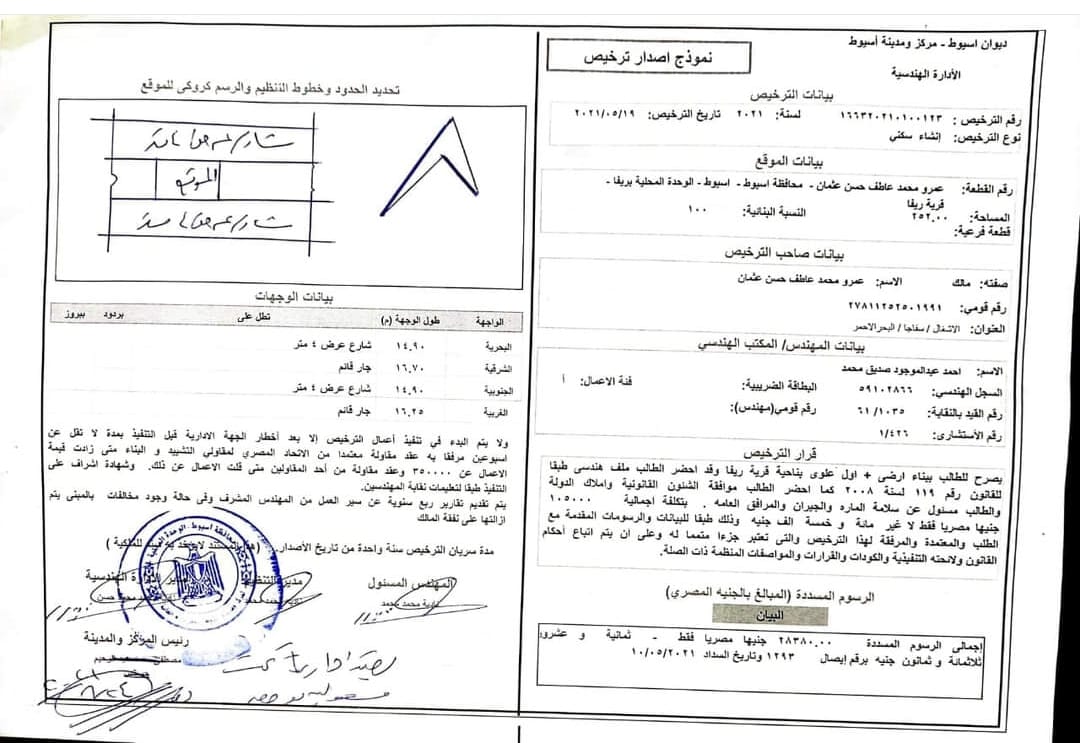 ديوان اسيوط - مركز ومدينة أسيوط
الأدارة الهندسية
نموذج اصدار ترخيص
بيانات الترخيص
رقم الترخيص : ١٦٦٣٢٠٢١٠١٠٠١٢٣ لسنة: ٢٠٢١ تاريخ الترخيص: ٢٠٢١/٠٥/١٩
نوع الترخيص: إنشاء سكني
بيانات الموقع
رقم القطعة: عمرو محمد عاطف حسن عثمان - محافظة اسيوط - اسيوط - الوحدة المحلية بريفا -
قرية ريفا
المساحة: ٢٥٢.٠٠ النسبة البنائية: ١٠٠
قطعة فرعية:
بيانات صاحب الترخيص
صفته: مالك الاسم: عمرو محمد عاطف حسن عثمان
رقم قومي: ٢٧٨١١٢٥٢٥٠١٩٩١
العنوان: الاشغال / سفاجا / البحر الاحمر
بيانات المهندس/ المكتب الهندسي
الاسم: احمد عبدالموجود صديق محمد
السجل الهندسي: ٥٩١٠٢٨٦٦ البطاقة الضريبية: فئة الاعمال: أ
رقم القيد بالنقابة: ٦١/١٠٣٥ رقم قومي(مهندس):
رقم الأستشارى: ١/٤٢٦
قرار الترخيص
يصرح للطالب ببناء ارضى + اول علوى بناحية قرية ريفا وقد احضر الطالب ملف هندسى طبقا
للقانون رقم ١١٩ لسنة ٢٠٠٨ كما احضر الطالب موافقة الشئون القانونية واملاك الدولة
والطالب مسئول عن سلامة الماره والجيران والمرافق العامه . بتكلفة اجمالية ١٠٥٠٠٠
جنيها مصريا فقط لا غير مائة و خمسة الف جنيه وذلك طبقا للبيانات والرسومات المقدمة مع
الطلب والمعتمدة والمرفقة لهذا الترخيص والتى تعتبر جزءا متمما له وعلى ان يتم اتباع أحكام
القانون ولائحته التنفيذية والكودات والقرارات والمواصفات المنظمة ذات الصلة.
الرسوم المسددة (المبالغ بالجنيه المصري)
البيان
إجمالى الرسوم المسددة ٢٨٣٨٠.٠٠ جنيها مصريا فقط - ثمانية و عشرو
ثلاثمائة و ثمانون جنيه برقم إيصال ١٢٩٣ وتاريخ السداد ٢٠٢١/٠٥/١٠
تحديد الحدود وخطوط التنظيم والرسم كروكى للموقع
الموقع
بيانات الوجهات
الواجهة طول الوجهة (م) تطل على بردود ببروز
البحرية ١٤.٩٠ شارع عرض ٤ متر
الشرقية ١٦.٧٠ جار قائم
الجنوبية ١٤.٩٠ شارع عرض ٤ متر
الغربية ١٦.٢٥ جار قائم
ولا يتم البدء في تنفيذ أعمال الترخيص إلا بعد أخطار الجهة الادارية قبل التنفيذ بمدة لا تقل عن
اسبوعين مرفقا به عقد مقاولة معتمدا من الاتحاد المصري لمقاولي التشييد و البناء متى زادت قيمة
الاعمال عن ٣٥٠٠٠٠ وعقد مقاولة من أحد المقاولين متى قلت الاعمال عن ذلك. وشهادة اشراف على
التنفيذ طبقا لتعليمات نقابة المهندسين.
يتم تقديم تقارير ربع سنوية عن سير العمل من المهندس المشرف وفى حالة وجود مخالفات بالمبنى يتم
ازالتها على نفقة المالك
مدة سريان الترخيص سنة واحدة من تاريخ الأصدار.
المهندس المسئول
مدير التنظيم
رئيس المركز والمدينة